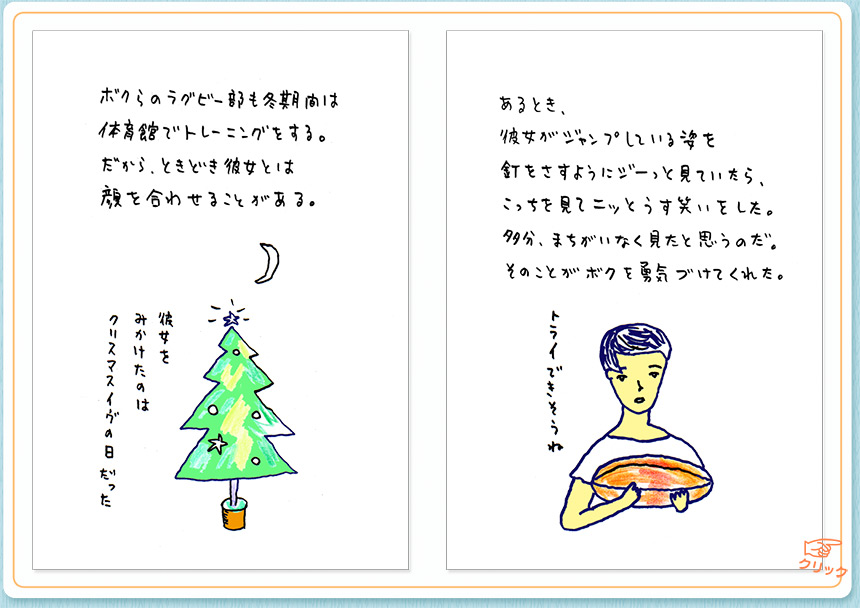 ボクらのラグビー部も冬期間は
体育館でトレーニングをする。
だから、ときどき彼女とは
顔を合わせることがある。
彼女を
みかけたのは
クリスマスイヴの日だった
あるとき、
彼女がジャンプしている姿を
釘をさすようにジーっと見ていたら、
こっちを見てニッとうす笑いをした。
多分、まちがいなく見たと思うのだ。
そのことがボクを勇気づけてくれた。
トライできそうね
クリック